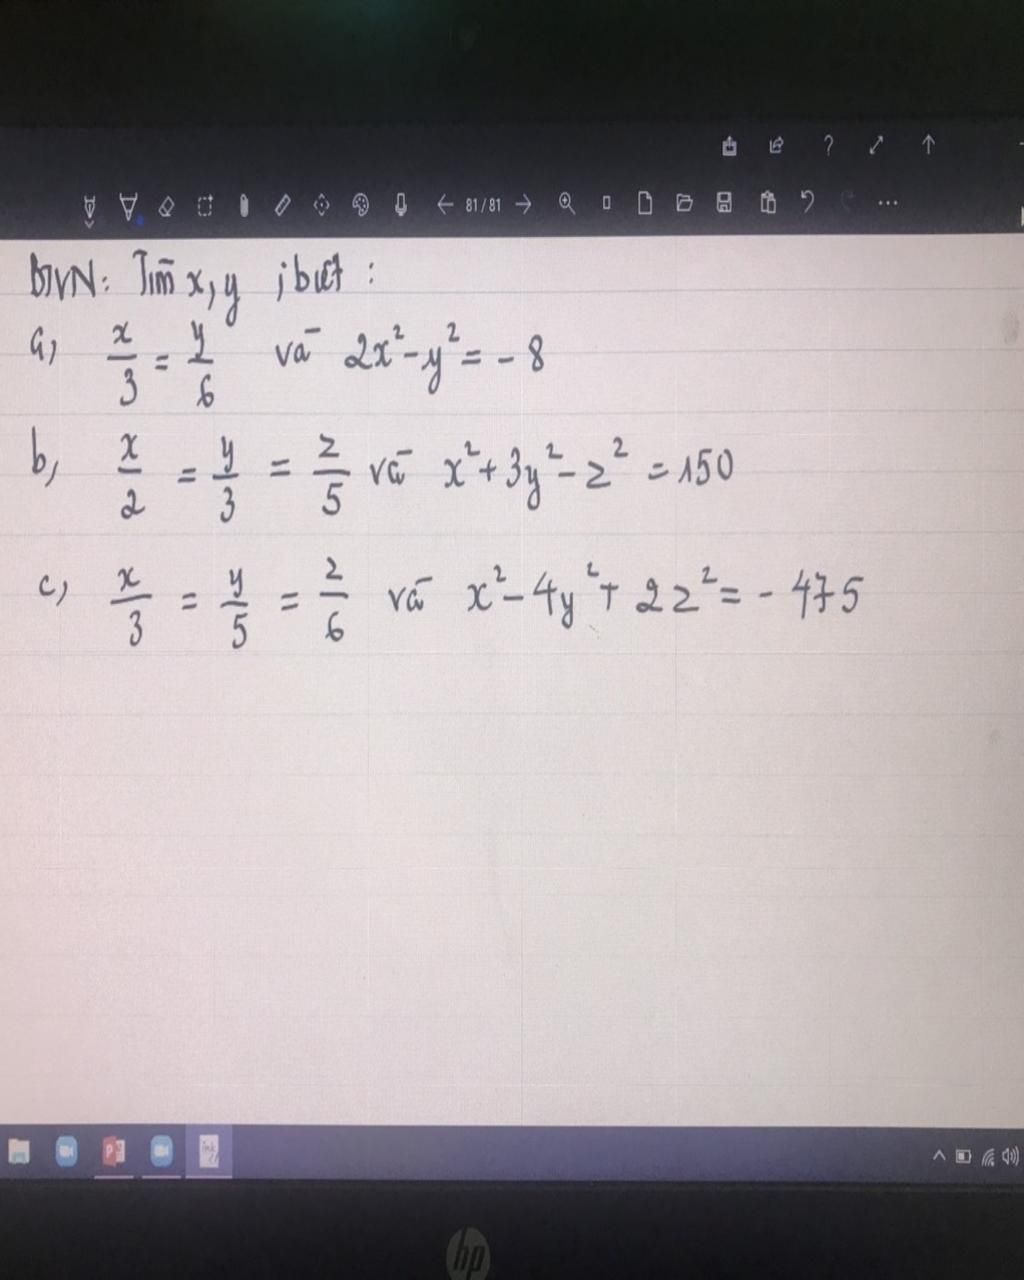 81/81
BTVN: Tìm x, y ; biết :
a, x/3 = y/6 và 2x² - y² = - 8
b, x/2 = y/3 = z/5 và x² + 3y² - z² = 150
c, x/3 = y/5 = z/6 và x² - 4y² + 2z² = - 475
hp